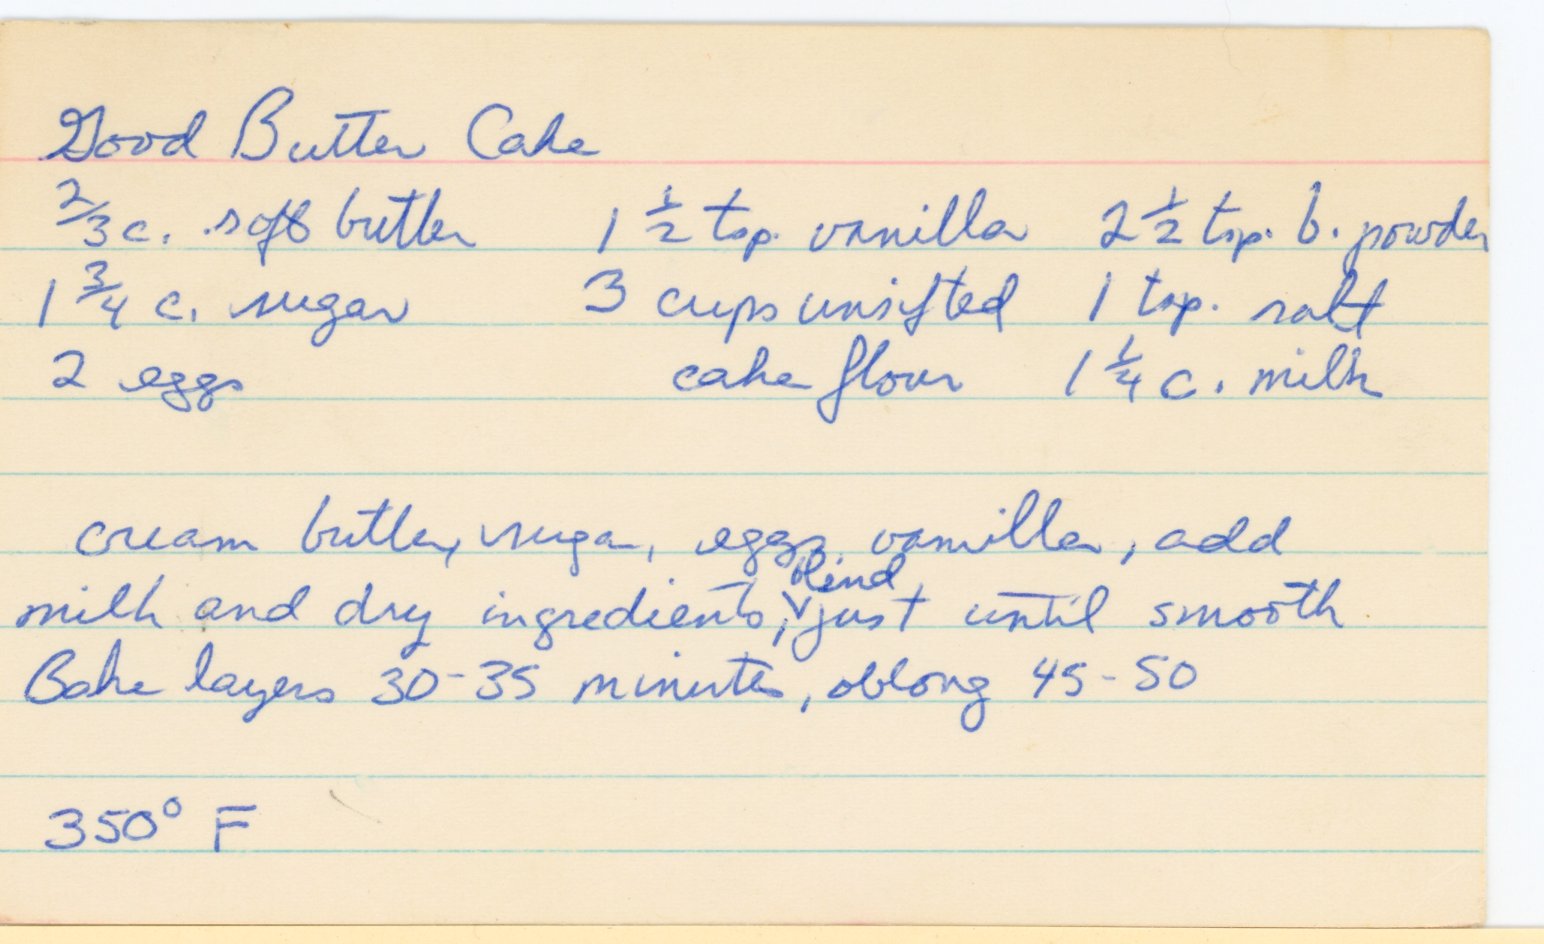 Good Butter Cake
2/3 c. soft butter 1 1/2 tsp. vanilla 2 1/2 tsp. b. powder
1 3/4 c. sugar 3 cups unsifted 1 tsp. salt
2 eggs cake flour 1 1/4 c. milk
cream butter, sugar, eggs, vanilla, add
milk and dry ingredients, blend just until smooth
Bake layers 30-35 minutes, oblong 45-50
350° F